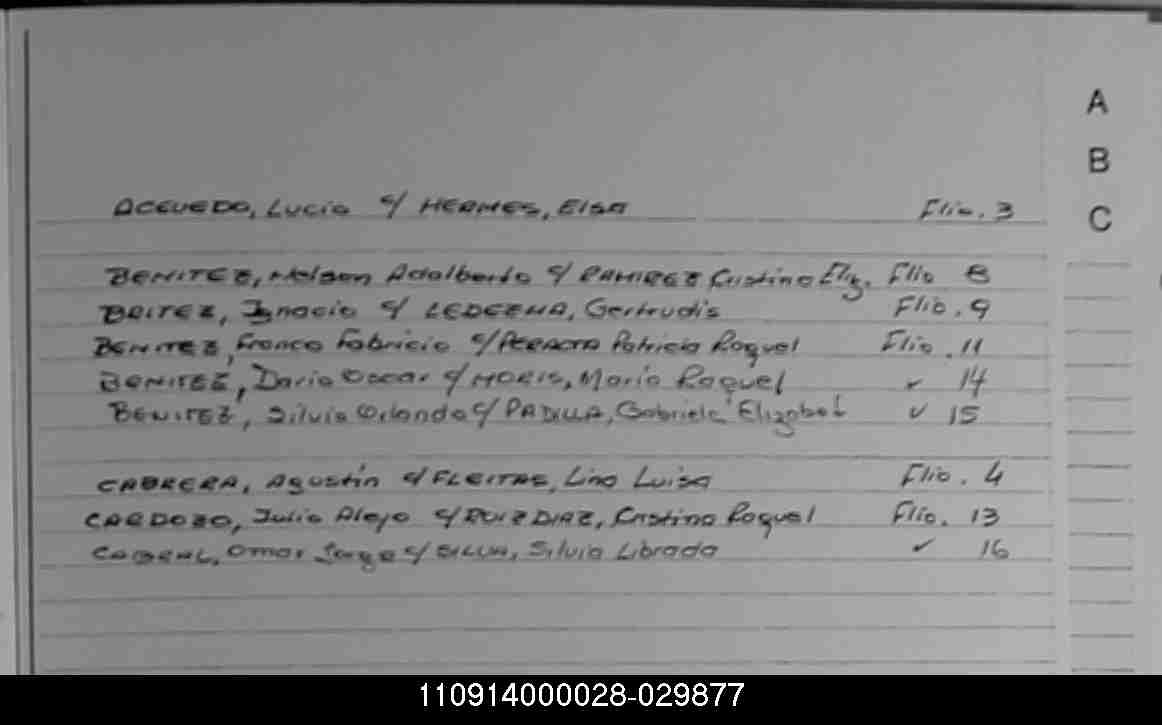 A
B
C
ACEVEDO, Lucio c/ HERMES, Elsa Flio. 3
BENITEZ, Nelson Adalberto c/ RAMIREZ Cristina Eliz. Flio 8
BRITEZ, Ignacio c/ LEDEZMA, Gertrudis Flio. 9
BENITEZ, Franco Fabricio c/ PERALTA Patricia Raquel Flio. 11
BENITEZ, Dario Oscar c/ MORIS, Maria Raquel ✓ 14
BENITEZ, Silvio Orlando c/ PADILLA, Gabriela Elizabet ✓ 15
CABRERA, Agustín c/ FLEITAS, Lina Luisa Flio. 4
CARDOZO, Julio Alejo c/ RUIZ DIAZ, Cristina Raquel Flio. 13
CABRAL, Omar Jorge c/ SILVA, Silvia Librada ✓ 16
110914000028-029877